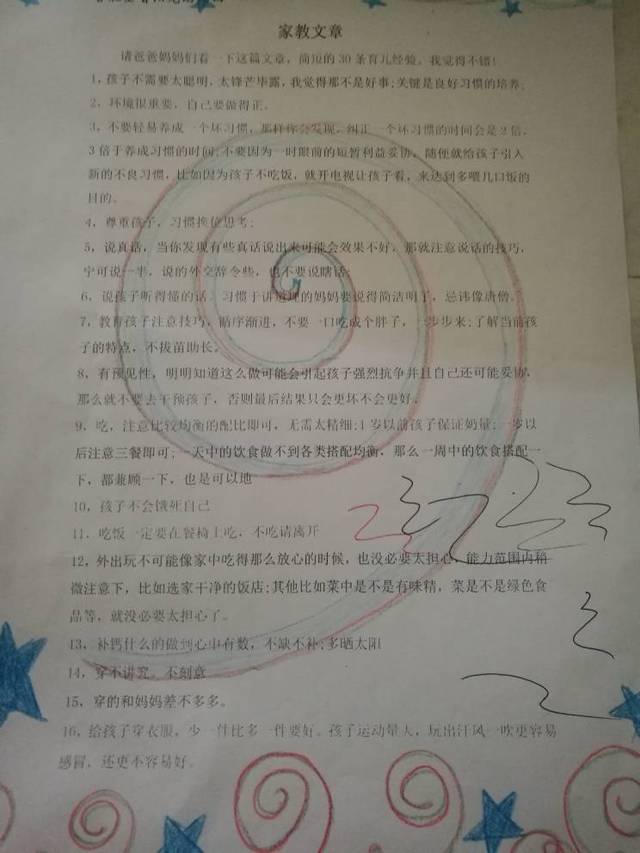 家教文章
请爸爸妈妈们看一下这篇文章，简短的30条育儿经验。我觉得不错！
1，孩子不需要太聪明，太锋芒毕露，我觉得那不是好事；关键是良好习惯的培养。
2，环境很重要，自己要做得正。
3，不要轻易养成一个坏习惯，那样你会发现，纠正一个坏习惯的时间会是2倍，
3倍于养成习惯的时间；不要因为一时眼前的短暂利益妥协，随便就给孩子引入
新的不良习惯，比如因为孩子不吃饭，就开电视让孩子看，来达到多喂几口饭的
目的。
4，尊重孩子，习惯换位思考；
5，说真话，当你发现有些真话说出来可能会效果不好，那就注意说话的技巧，
宁可说一半，说的外交辞令些，也不要说瞎话；
6，说孩子听得懂的话。习惯于讲道理的妈妈要说得简洁明了，忌讳像唐僧。
7，教育孩子注意技巧，循序渐进，不要一口吃成个胖子，一步步来；了解当前孩
子的特点，不拔苗助长。
8，有预见性，明明知道这么做可能会引起孩子强烈抗争并且自己还可能妥协，
那么就不要去干预孩子，否则最后结果只会更坏不会更好。
9，吃，注意比较均衡的配比即可，无需太精细；1岁以前孩子保证奶量；一岁以
后注意三餐即可；一天中的饮食做不到各类搭配均衡，那么一周中的饮食搭配一
下，都兼顾一下，也是可以地
10，孩子不会饿死自己
11，吃饭一定要在餐椅上吃，不吃请离开
12，外出玩不可能像家中吃得那么放心的时候，也没必要太担心，能力范围内稍
微注意下，比如选家干净的饭店；其他比如菜中是不是有味精，菜是不是绿色食
品等，就没必要太担心了。
13，补钙什么的做到心中有数，不缺不补；多晒太阳
14，穿不讲究。不刻意
15，穿的和妈妈差不多多。
16，给孩子穿衣服，少一件比多一件要好。孩子运动量大，玩出汗风一吹更容易
感冒，还更不容易好。